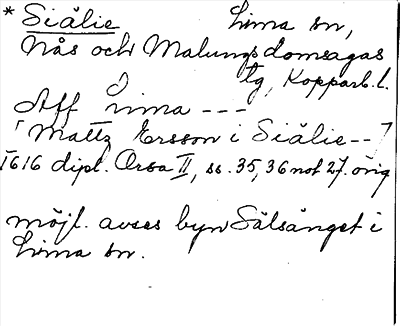 * Siälie Lima sn,
Nås och Malungs domsagas
tg, Kopparb. l.
Aff Lima ---
"Mattz Ersson i Siälie--"
1616 dipl. Orsa II, ss. 35, 36 not 27. orig
möjl. avses byn Sälsänget i
Lima sn.